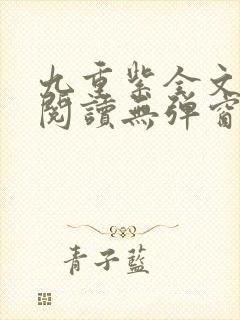 九重紫全文
閱讀無彈窗
青子藍